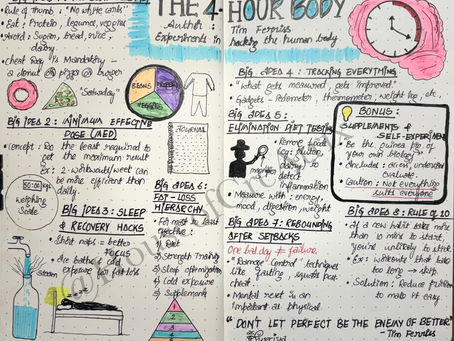 THE 4 HOUR BODY
Author :
Tim Ferriss
Experiments in
hacking the human body
Rule of thumb : "No white carbs"
Eat : Protein, legumes, veggies
Avoid : Sugar, bread, rice,
dairy
Cheat Day is Mandatory -
a donut or pizza or burger
"Saturday"
BEANS
PROTEIN
VEGGIES
BIG IDEA 2 : MINIMUM EFFECTIVE
DOSE (MED)
Concept : Do the least required to
get the maximum result
Ex : 2 workouts/week can
be more efficient than
daily
50:00 kgs
Weighing
Scale
JOURNAL
BIG IDEA 3 : SLEEP
& RECOVERY HACKS
Short naps = better
FOCUS
Ice baths &
exposure for fat loss
Steam
BIG IDEA 6 :
FAT-LOSS
HIERARCHY
For most to least
effective :
1. Diet
2. Strength Training
3. Sleep optimization
4. Cold exposure
5. Supplements
BIG IDEA 4 : TRACKING EVERYTHING
"What gets measured, gets improved"
Gadgets - Pedometer, thermometer, weight log, etc.
BIG IDEA 5 :
ELIMINATION DIET TESTING
Remove foods
(eg: gluten,
dairy) to
detect
inflammation
Measure with : energy,
mood, digestion, weight
BIG IDEA 7 : REBOUNDING
AFTER SETBACKS
One bad day ≠ failure.
"Damage Control" techniques
like fasting, squats post
cheat.
Mental reset is as
important as physical
BONUS :
SUPPLEMENTS &
SELF-EXPERIMENT
Be the guinea pig of
your own biology
Includes : dosing, intervals,
evaluate.
Caution : Not everything
suits everyone
BIG IDEA 8 : RULE OF 10
If a new habit takes more
than 10 mins to start,
you're unlikely to stick.
Ex : Workouts that take
too long → skip.
Solution : Reduce friction
to make it easy.
"DON'T LET PERFECT BE THE ENEMY OF BETTER"
- Tim Ferriss